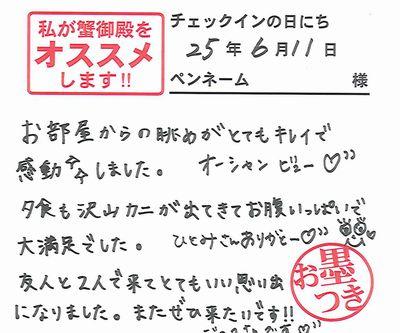 私が蟹御殿を
オススメ
します!!
チェックインの日にち
25年6月11日
ペンネーム 様
お部屋からの眺めがとてもキレイで
感動しました。 オーシャンビュー♡
夕食も沢山カニが出てきてお腹いっぱいで
大満足でした。 ひとみさんありがとー♡
友人と2人で来てとてもいい思い出
になりました。またぜひ来たいです!!
お墨つき